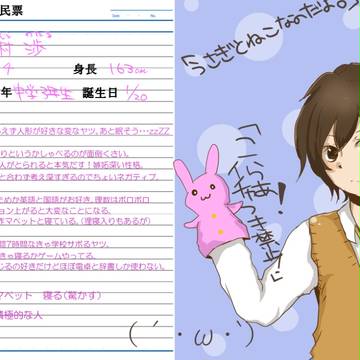 民票
Date
村 渉
身長 163cm
年 中学3年生 誕生日 1/20
えず人形が好きな変なヤツ。あと眠そう…zzZZ
りというかしゃべるのが面倒くさい。
人がとられると本気だす!嫉妬深い性格。
と合わず考え深すぎるのでちょいネガティブ。
ためか英語と国語がお好き。理数はボロボロ
ョン上がると大変なことになる。
マペットと寝ている。(理寝入りもあるが)
間7時間なきゃ学校サボるヤツ。
きゃ寝るかゲームやってる。
じるの好きだけどほぼ電卓と辞書しか使わない。
マペット 寝る(驚かす)
積極的な人
うさぎとねこなのだよ。
こらぁ!
つき禁止
(´・ω・`)